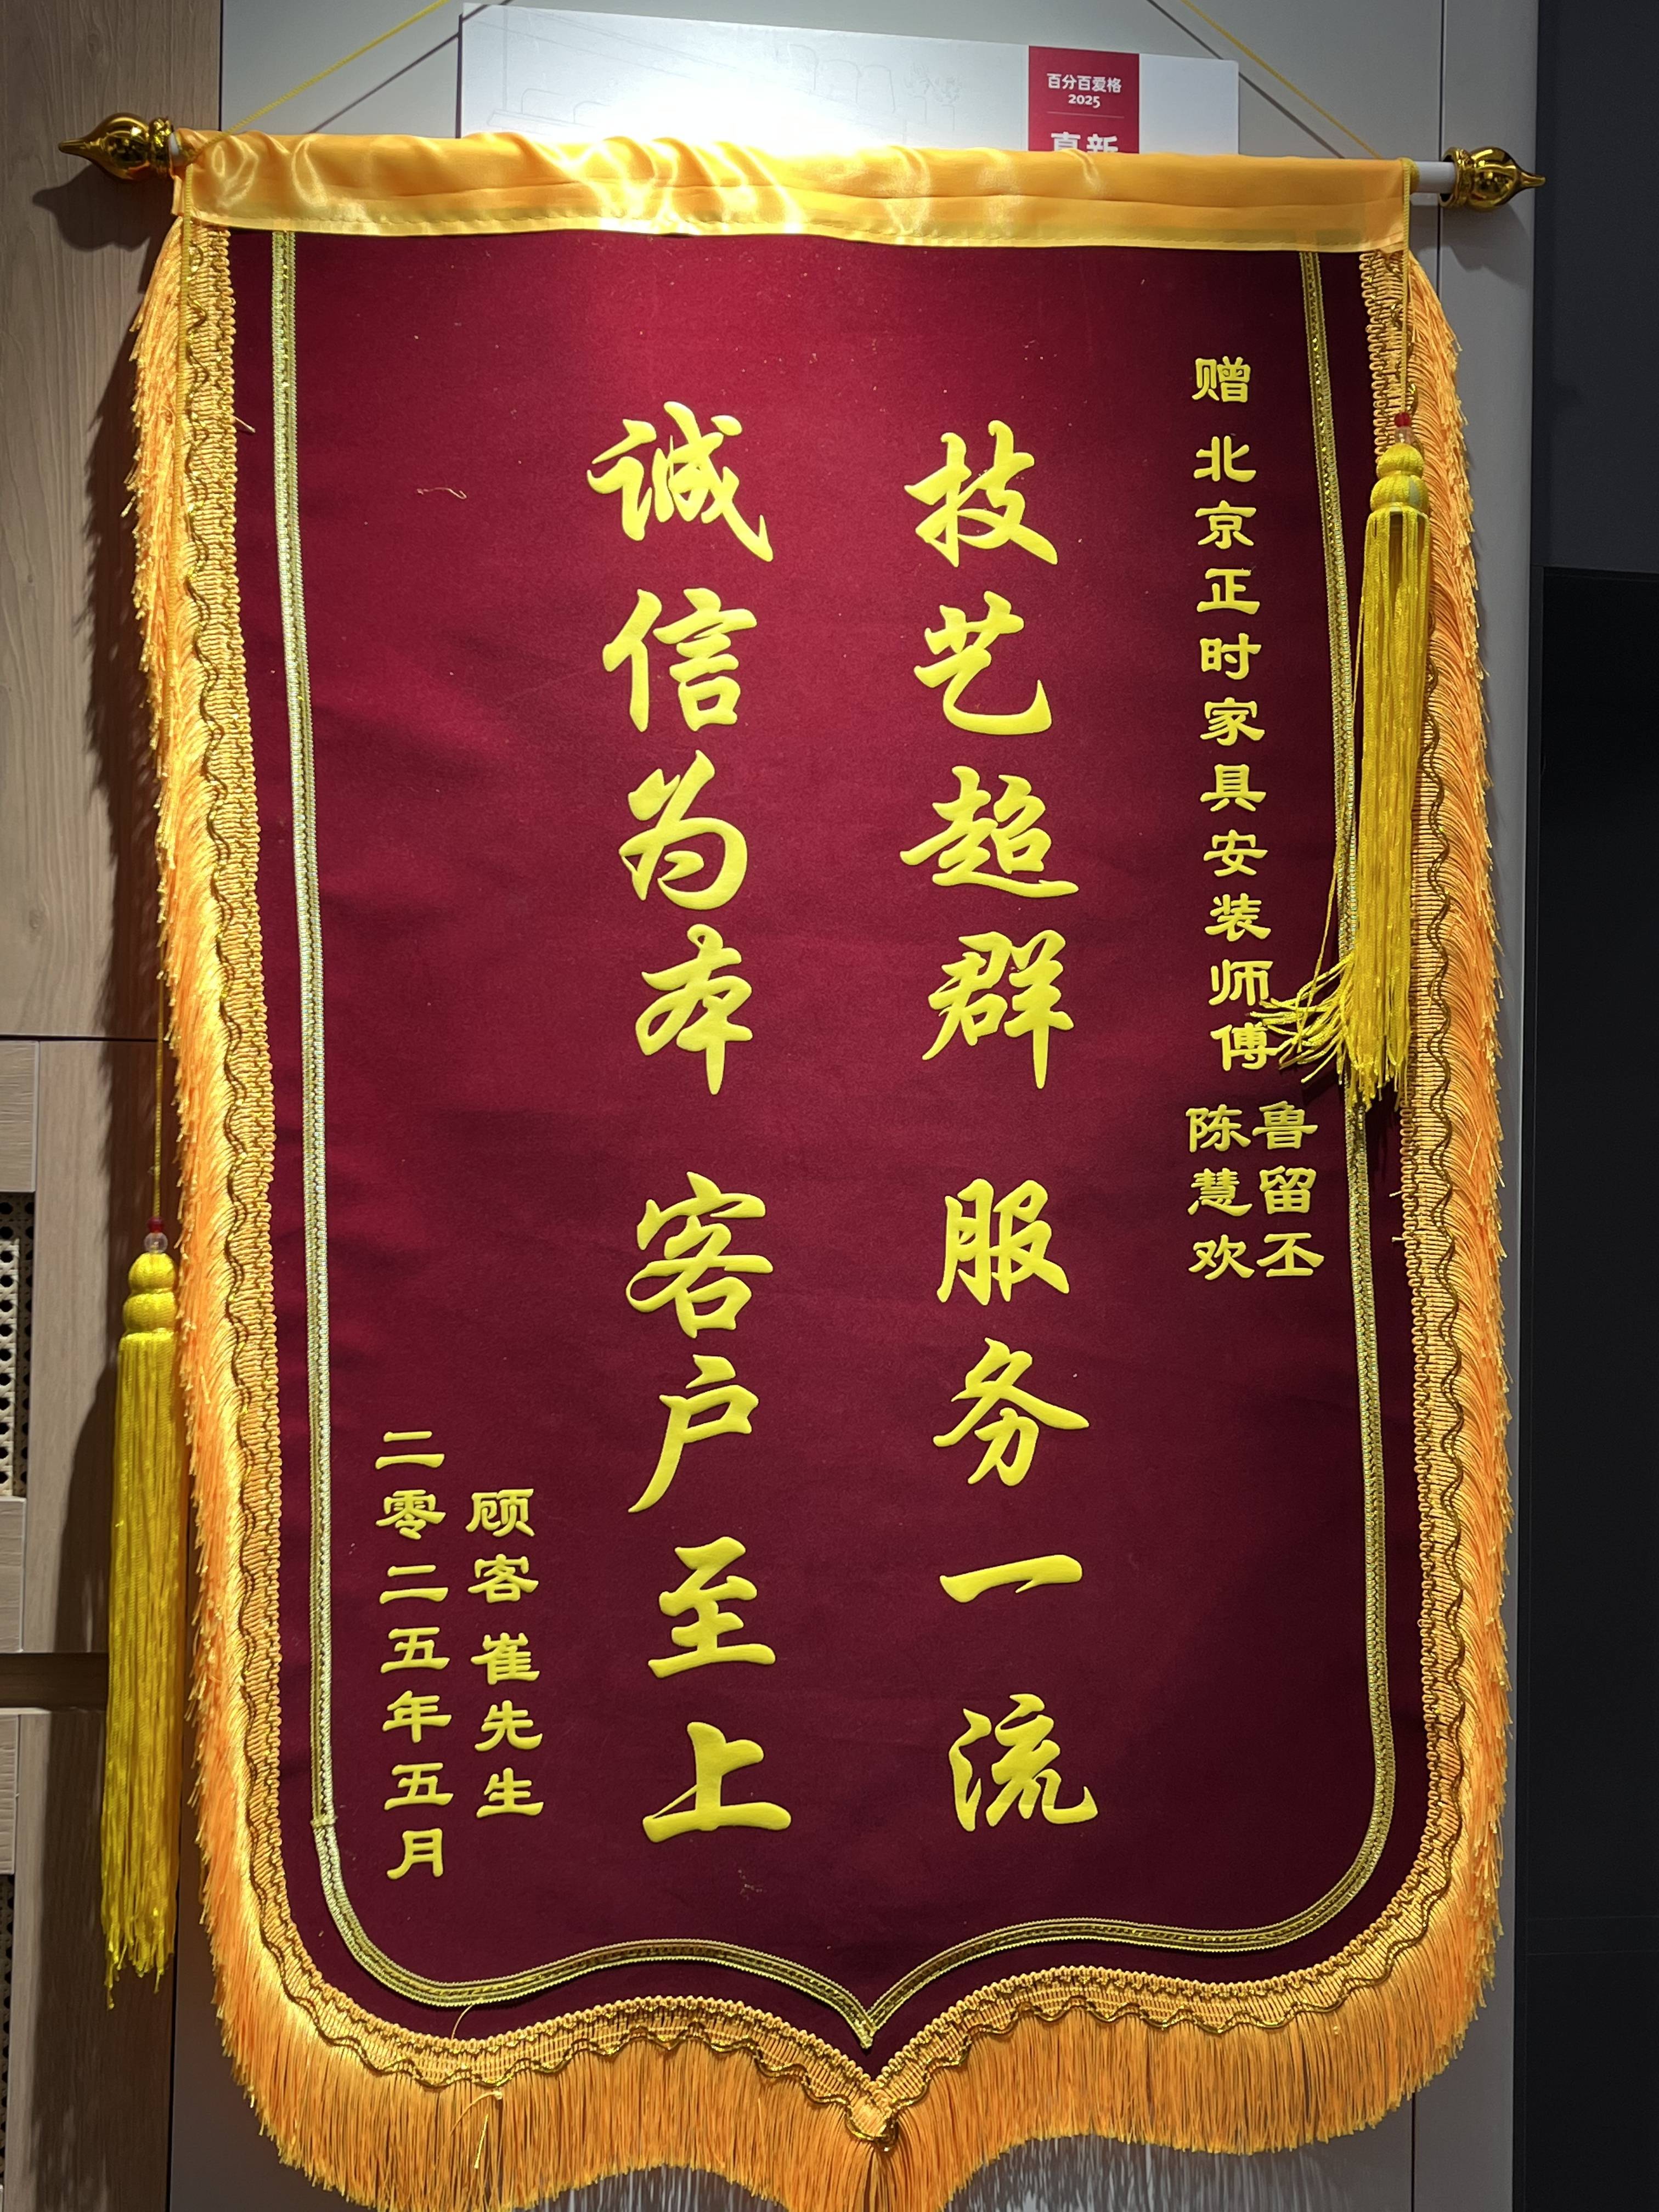 百分百爱格
2025
真新
赠 北京正时家具安装师傅
鲁留丕
陈慧欢
技艺超群 服务一流
诚信为本 客户至上
顾客 崔先生
二零二五年五月